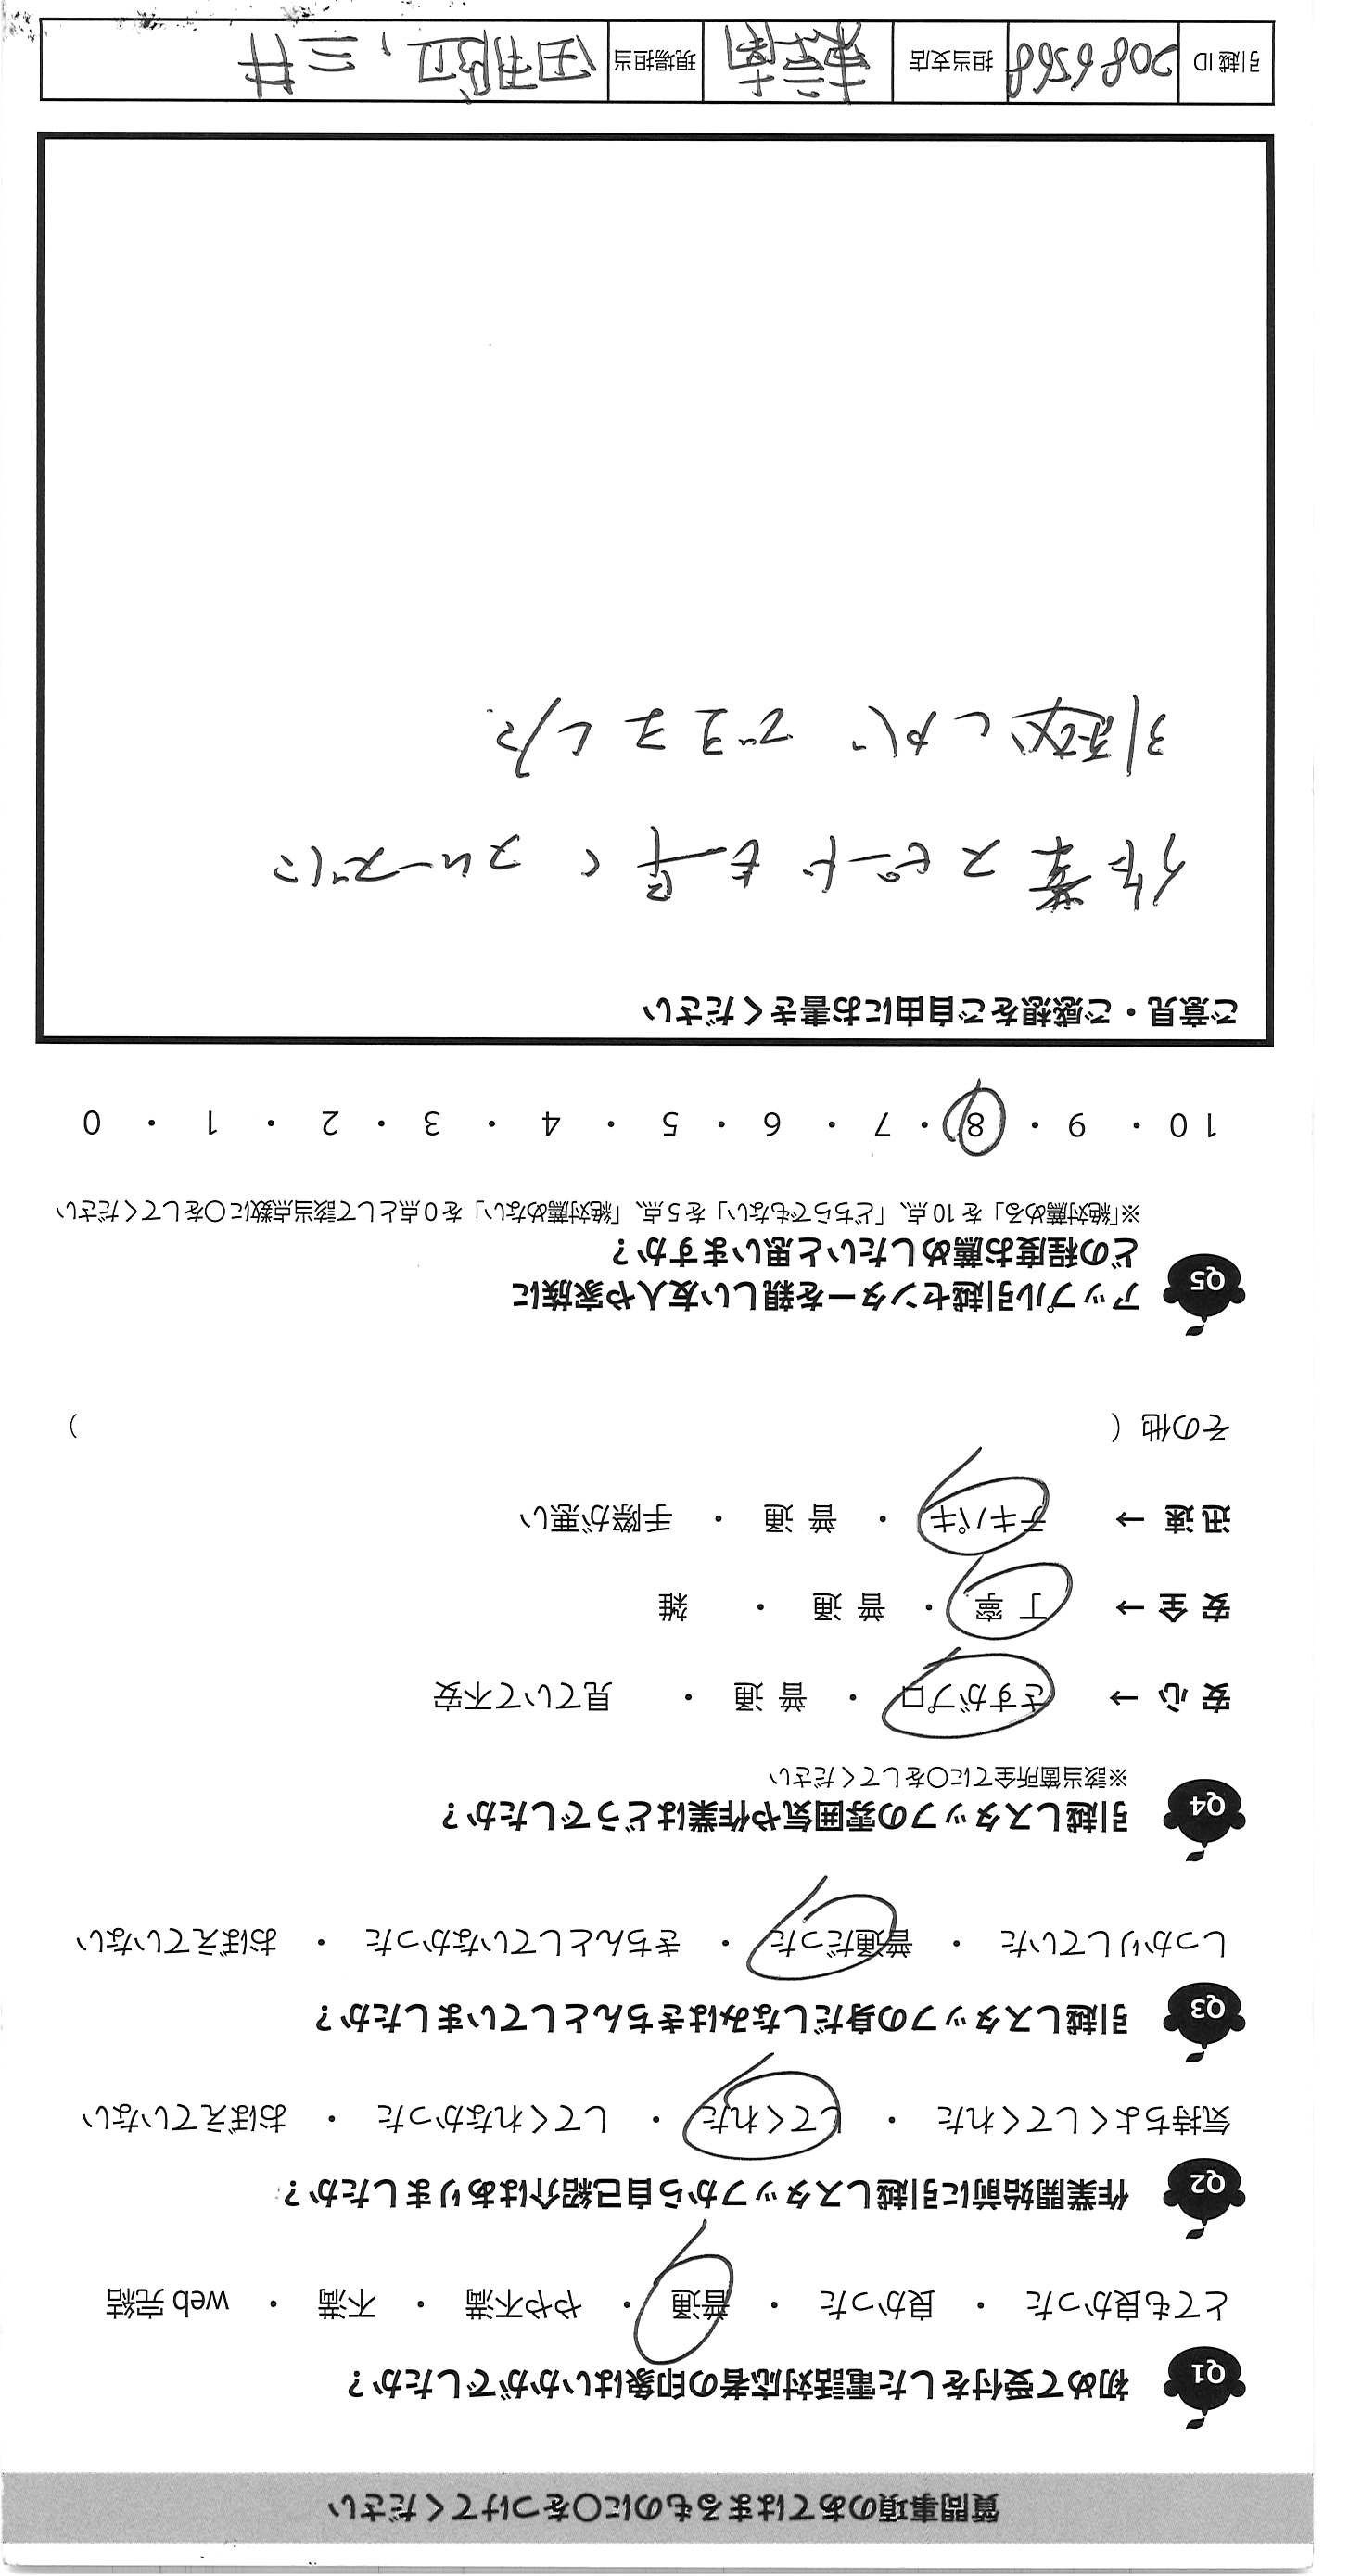 質問事項のあてはまるものに〇をつけてください
Q1 初めて受付をした電話対応者の印象はいかがでしたか？
とても良かった ・ 良かった ・ 普通 ・ やや不満 ・ 不満 ・ web 完結
Q2 作業開始前に引越しスタッフから自己紹介はありましたか？
気持ちよくしてくれた ・ してくれた ・ してくれなかった ・ おぼえていない
Q3 引越しスタッフの身だしなみはきちんとしていましたか？
しっかりしていた ・ 普通だった ・ きちんとしていなかった ・ おぼえていない
Q4 引越しスタッフの雰囲気や作業はどうでしたか？
※該当箇所全てに〇をしてください
安 心 → さすがプロ ・ 普 通 ・ 見ていて不安
安 全 → 丁 寧 ・ 普 通 ・ 雑
迅 速 → テキパキ ・ 普 通 ・ 手際が悪い
その他（ ）
Q5 アップル引越センターを親しい友人や家族に
どの程度お薦めしたいと思いますか？
※「絶対薦める」を 10 点、「どちらでもない」を 5 点、「絶対薦めない」を 0 点として該当点数に〇をしてください
10 ・ 9 ・ 8 ・ 7 ・ 6 ・ 5 ・ 4 ・ 3 ・ 2 ・ 1 ・ 0
ご意見・ご感想をご自由にお書きください
作業スピードも早くスムーズに
引越しができました
引越 ID 2086568 担当支店 現場担当 三井